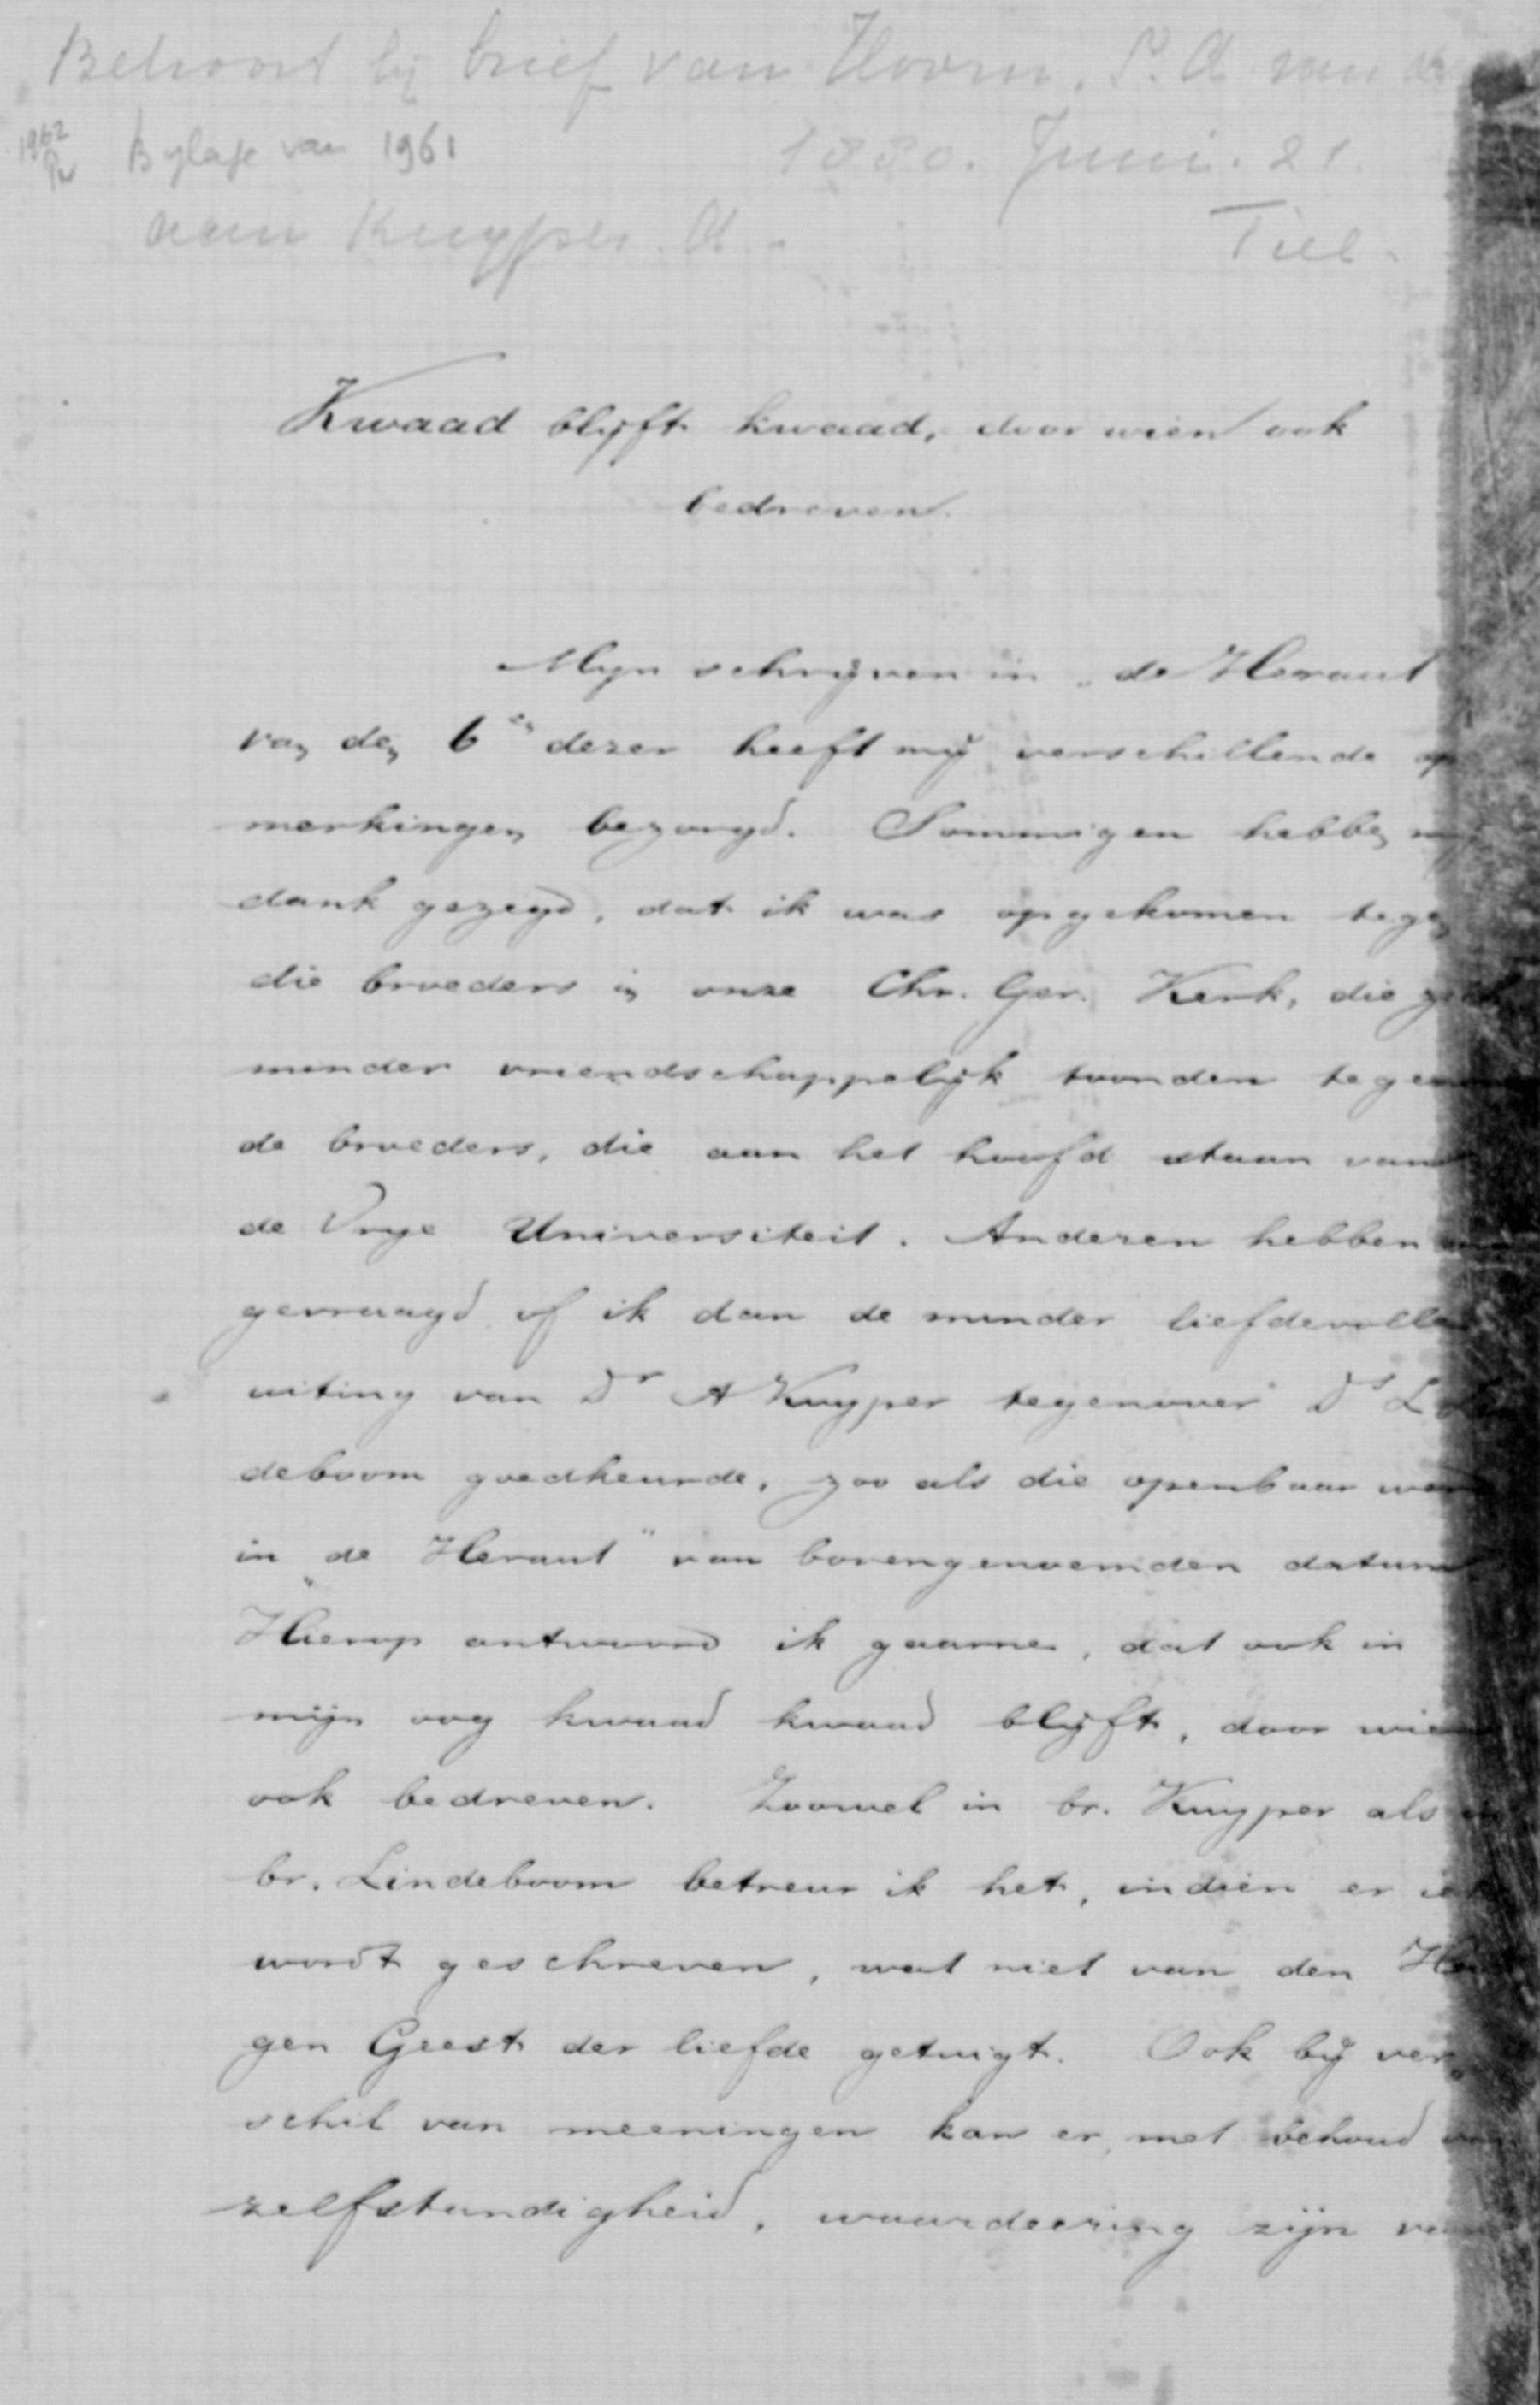 Behoort bij brief van Hoorn, P. A. van de
1962 Bylage van 1961 1880. Juni. 21.
aan Kuyper. A. Tiel.
Kwaad blijft kwaad, door wien ook
bedreven.
Mijn schrijven in "de Heraut
van den 6en dezer heeft mij verschillende op
merkingen bezorgd. Sommigen hebben mij
dank gezegd, dat ik was opgekomen tegen
die broeders in onze Chr. Ger. Kerk, die
minder vriendschappelijk toonden tegen
de broeders, die aan het hoofd staan van
de Vrije Universiteit. Anderen hebben
gevraagd of ik dan de minder liefdevolle
uiting van Dr A Kuyper tegenover Ds L
deboom goedkeurde, zoo als die openbaar werd
in "de Heraut" van bovengenoemden datum
Hierop antwoord ik gaarne, dat ook in
mijn oog kwaad kwaad blijft, door wien
ook bedreven. Zoowel in br. Kuyper als in
br. Lindeboom betreur ik het, indien er iets
wordt geschreven, wat niet van den Hei
gen Geest der liefde getuigt. Ook bij ver
schil van meeningen kan er, met behoud van
zelfstandigheid, waardeering zijn van